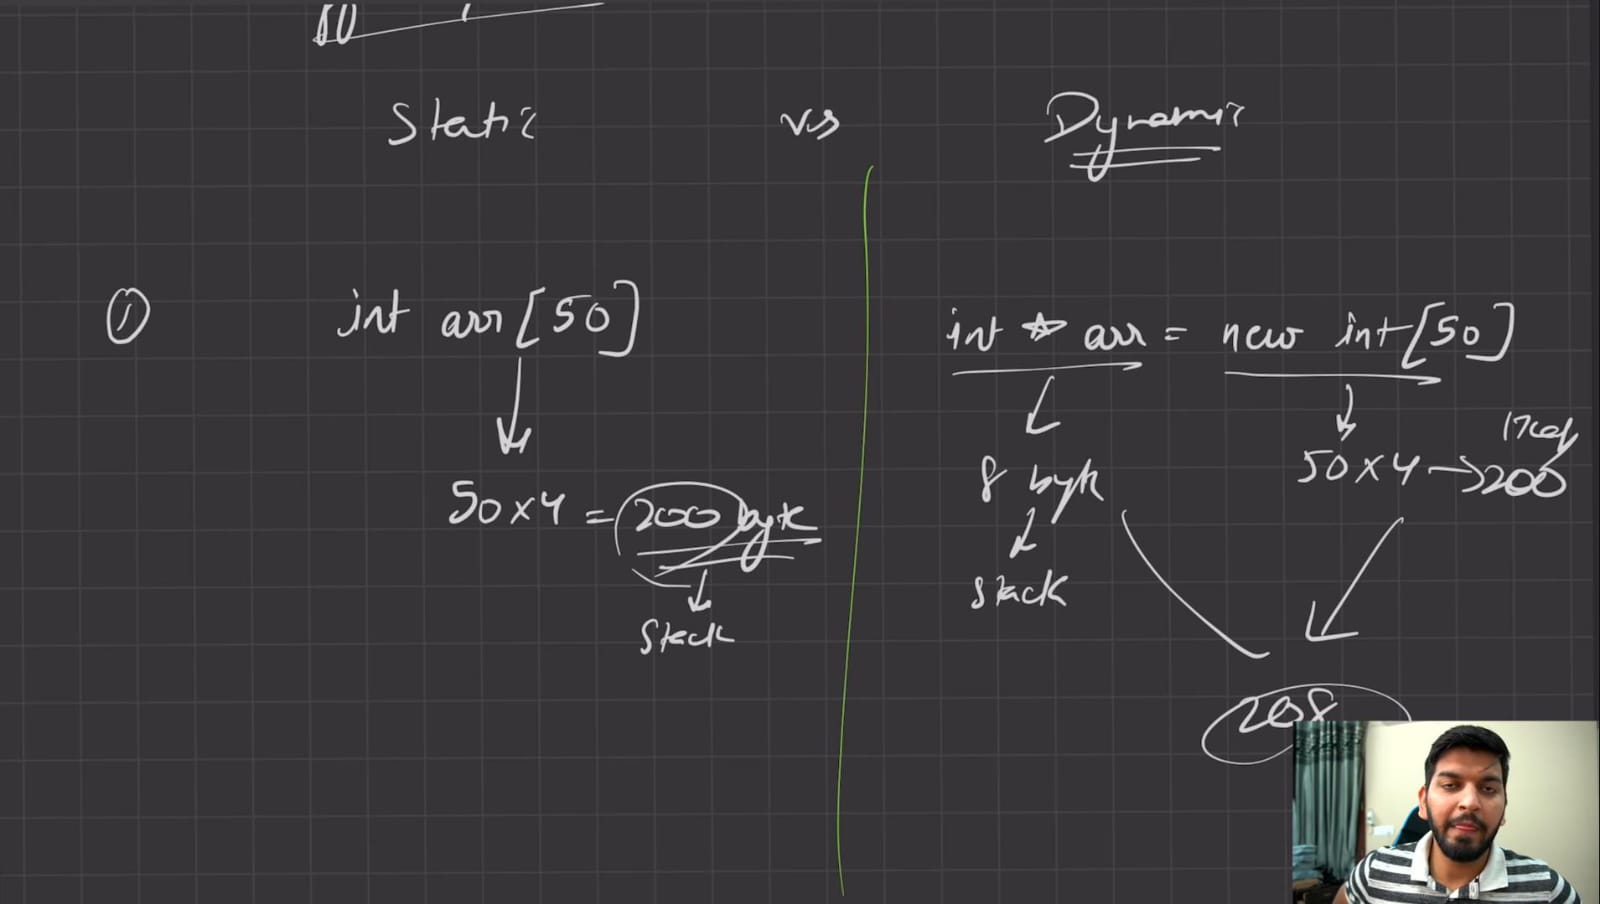 Static vs Dynamic
① int arr[50]
50×4 = 200 byte
Stack
int * arr = new int[50]
8 byte
Stack
50×4 → 200
Heap
208